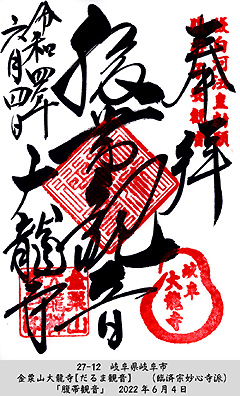 奉拝
腹帯観音
令和四年
六月四日
大龍寺
岐阜
大龍寺
27-12 岐阜県岐阜市
金粟山大龍寺【だるま観音】 （臨済宗妙心寺派）
「腹帯観音」 2022年6月4日